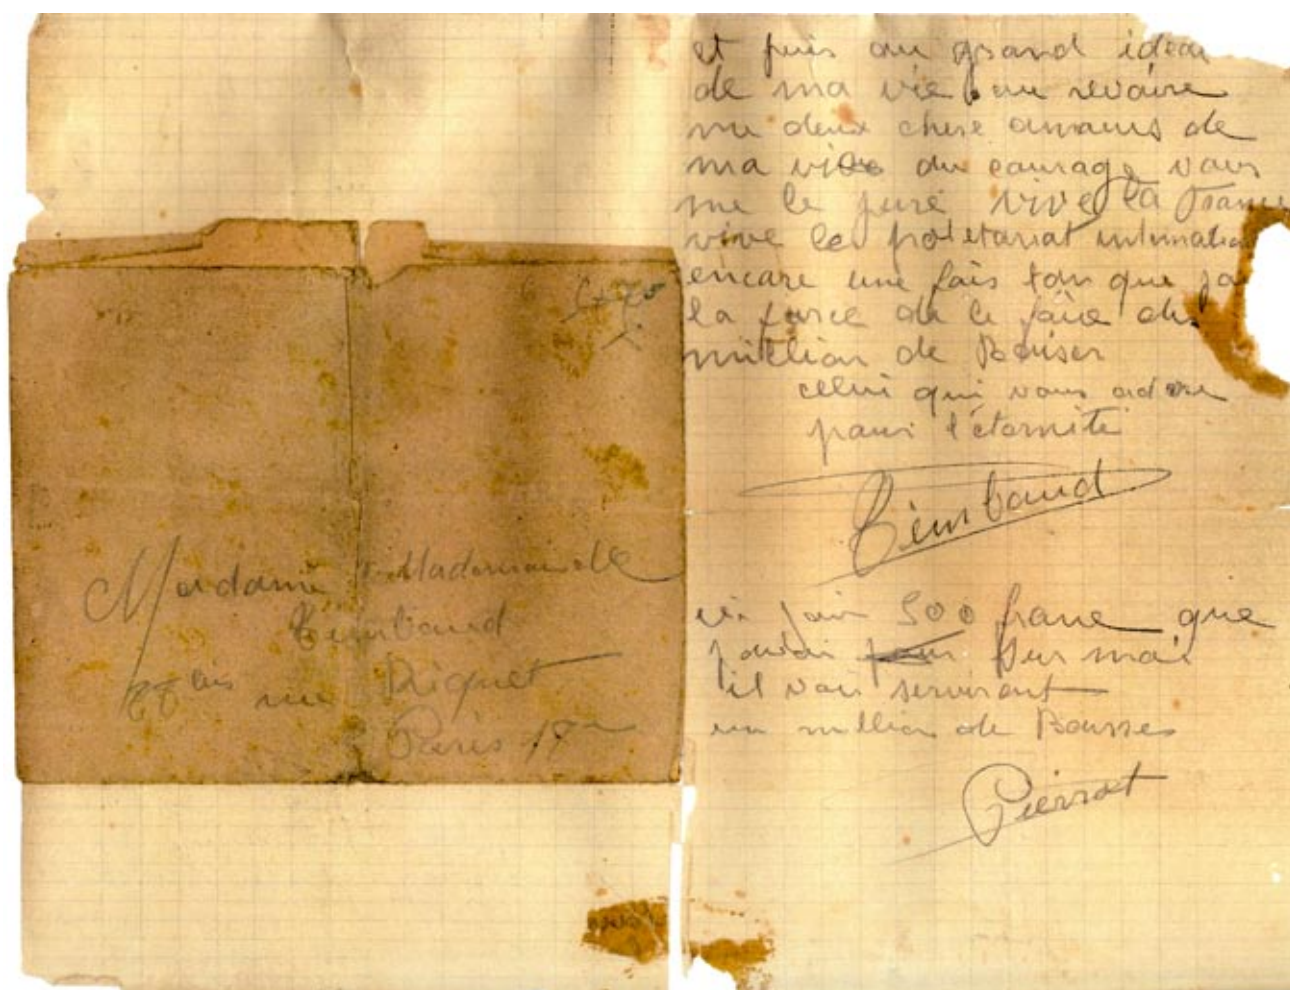 Madame & Mademoiselle
Timbaud
bis rue Riquet
Paris
et puis au grand idéau
de ma vie au revoire
me deux chere amours de
ma vie du courage vous
me le juré vive la France
vive le proletariat internation
encore une fois tan que ja
la force de le faire des
million de Baiser
celui qui vous adore
pour l'éternité
Timbaud
500 franc que
javai sur moi
il vou serviront
un million de Baisses
Pierrot